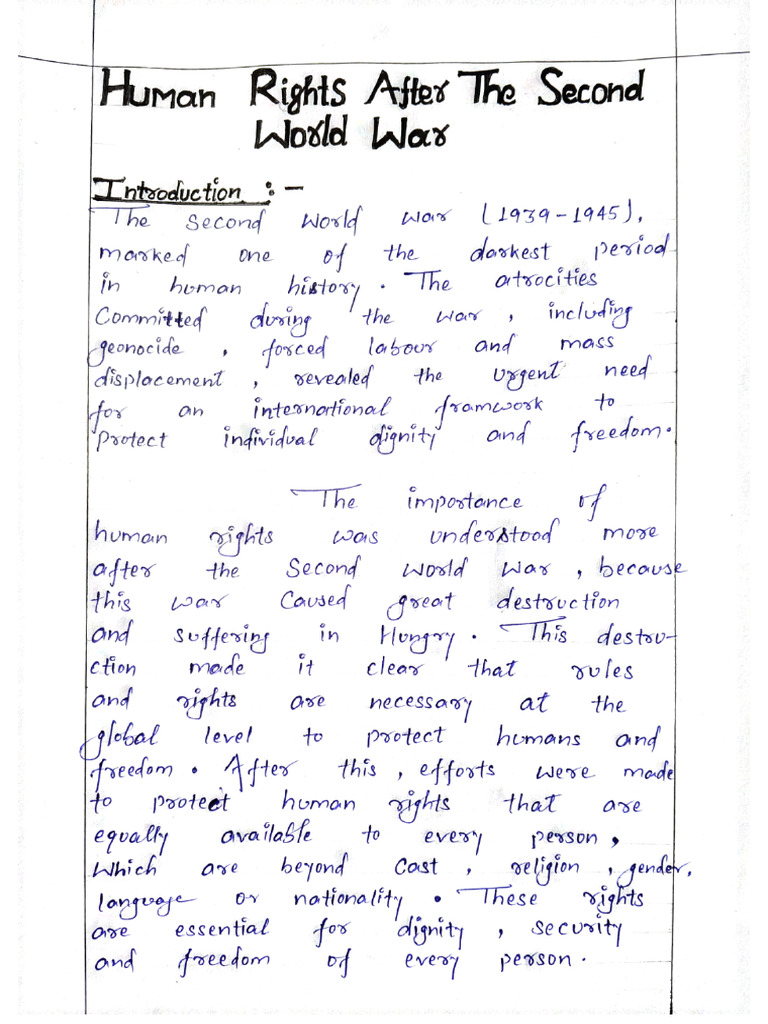 Human Rights After The Second
World War
Introduction :-
The Second World War (1939-1945),
marked one of the darkest period
in human history. The atrocities
Committed during the war, including
geonocide, forced labour and mass
displacement, revealed the urgent need
for an international framwork to
protect individual dignity and freedom.
The importance of
human rights was understood more
after the Second World War, because
this war caused great destruction
and suffering in Hungry. This destru-
ction made it clear that rules
and rights are necessary at the
global level to protect humans and
freedom. After this, efforts were made
to protect human rights that are
equally available to every person,
Which are beyond Cast, religion, gender,
language or nationality. These rights
are essential for dignity, security
and freedom of every person.